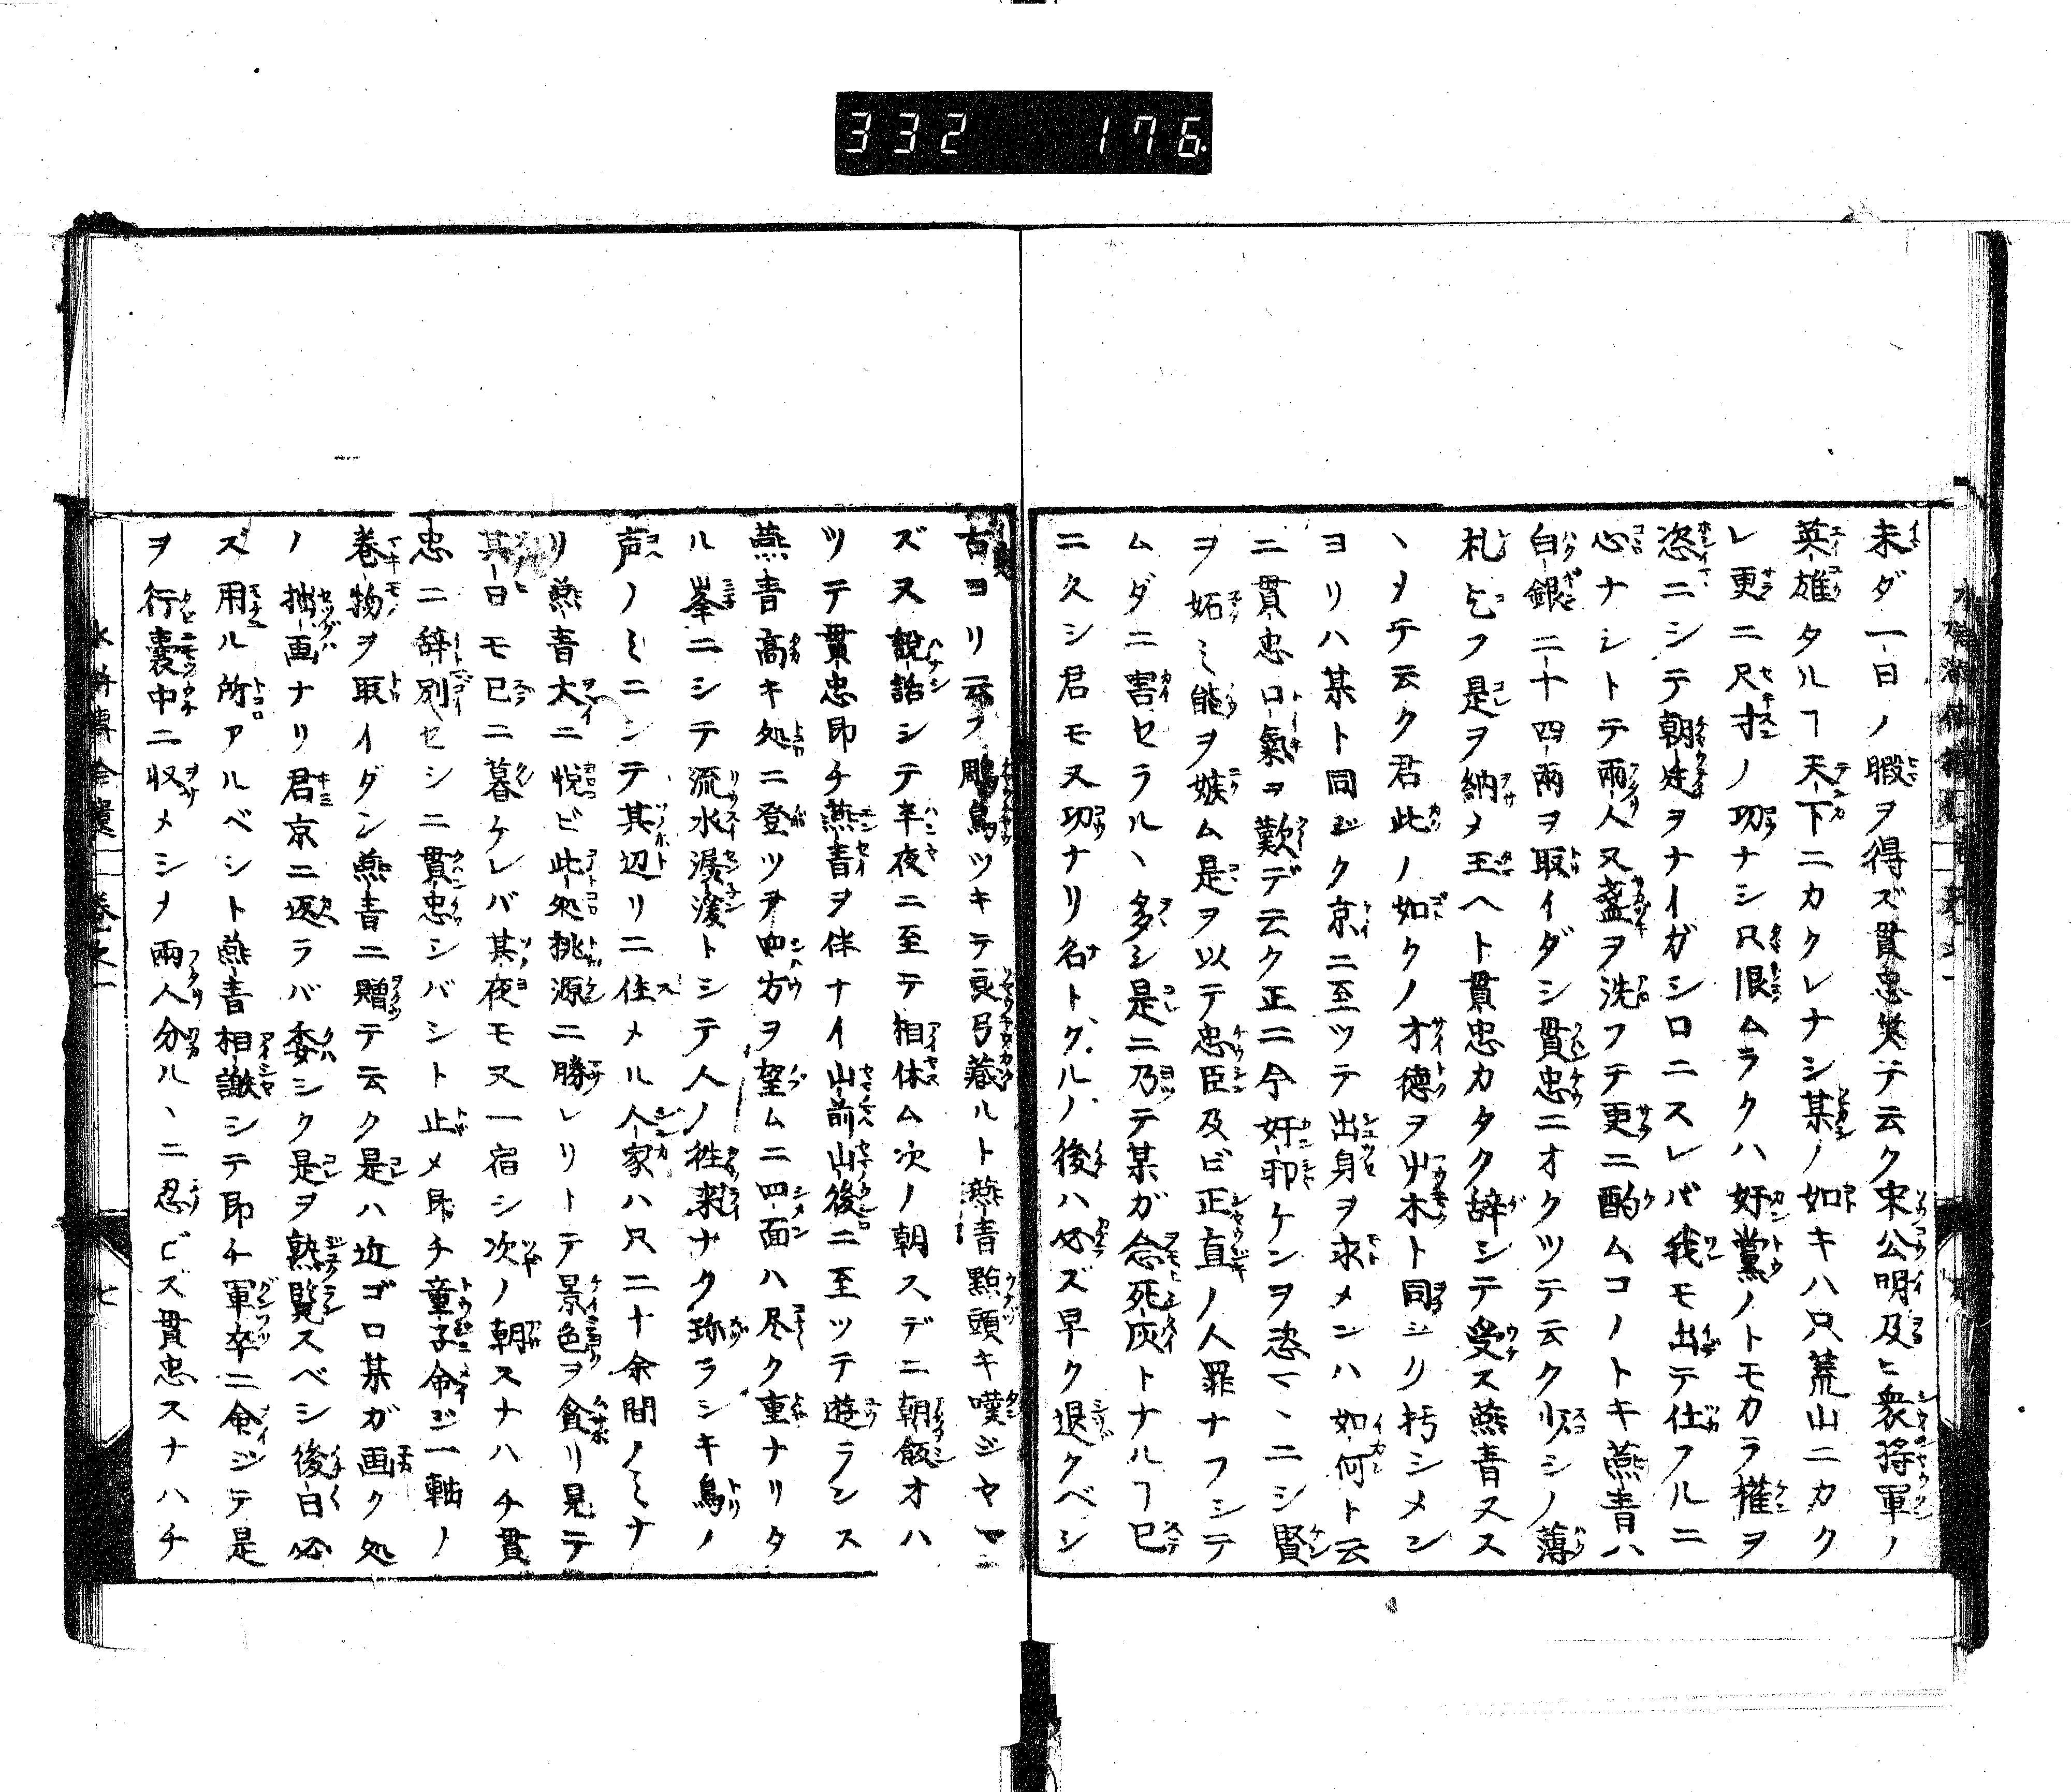 332 176
未ダ一日ノ暇ヲ得ズ貫忠笑テ云ク宋公明及ヒ衆將軍ノ
英雄タルヿ天下ニカクレナシ某ノ如キハ只荒山ニカク
レ更ニ尺寸ノ功ナシ只恨ムラクハ奸黨ノトモカラ權ヲ
恣ニシテ朝廷ヲナイガシロニスレバ我モ出テ仕フルニ
心ナシトテ兩人又盞ヲ洗フテ更ニ酌ムコノトキ燕青ハ
白銀二十四兩ヲ取イダシ貫忠ニオクツテ云ク少シノ薄
札乞フ是ヲ納メ玉ヘト貫忠カタク辞シテ受ス燕青又ス
丶メテ云ク君此ノ如クノ才德ヲ以木ト同シク朽シメン
ヨリハ某ト同ジク京ニ至ツテ出身ヲ求メンハ如何ト云
ニ貫忠口氣ヲ歎デ云ク正ニ今奸邪ケンヲ恣マ丶ニシ賢
ヲ妬ミ能ヲ嫉ム是ヲ以テ忠臣及ビ正直ノ人罪ナフシテ
ムダニ害セラル丶多シ是ニ乃テ某ガ念死灰トナルヿ已
ニ久シ君モ又功ナリ名トグルノ後ハ必ズ早ク退クベシ
古ヨリ云フ鵰鳥ツキテ良弓蔵ルト燕青點頭キ嘆ジヤマ
ズ又説話シテ半夜ニ至テ相休ム次ノ朝スデニ朝飯オハ
ツテ貫忠即チ燕青ヲ伴ナイ山前山後ニ至ツテ遊ラン ス
燕青高キ処ニ登ツヲ四方ヲ望ムニ四面ハ尽ク重ナリタ
ル峯ニシテ流水潺湲トシテ人ノ徃来ナク珎ラシキ鳥ノ
声ノミニシテ其辺リニ住メル人家ハ只二十余間ノミナ
リ燕青大ニ悦ビ此処桃源ニ勝レリトテ景色ヲ貪リ見テ
其日モ已ニ暮ケレバ其夜モ又一宿シ次ノ朝スナハチ貫
忠ニ辞別セシニ貫忠シバシト止メ即チ童子命ジ一軸ノ
巻物ヲ取イダシ燕青ニ贈テ云ク是ハ近ゴロ某ガ画ク処
ノ拙画ナリ君京ニ返ラバ委シク是ヲ熟覧スベシ後日必
ズ用ル所アルベシト燕青相謝シテ即チ軍卒ニ命ジテ是
ヲ行裹中ニ収メシメ兩人分ル丶ニ忍ビズ貫忠スナハチ
卷之一
七